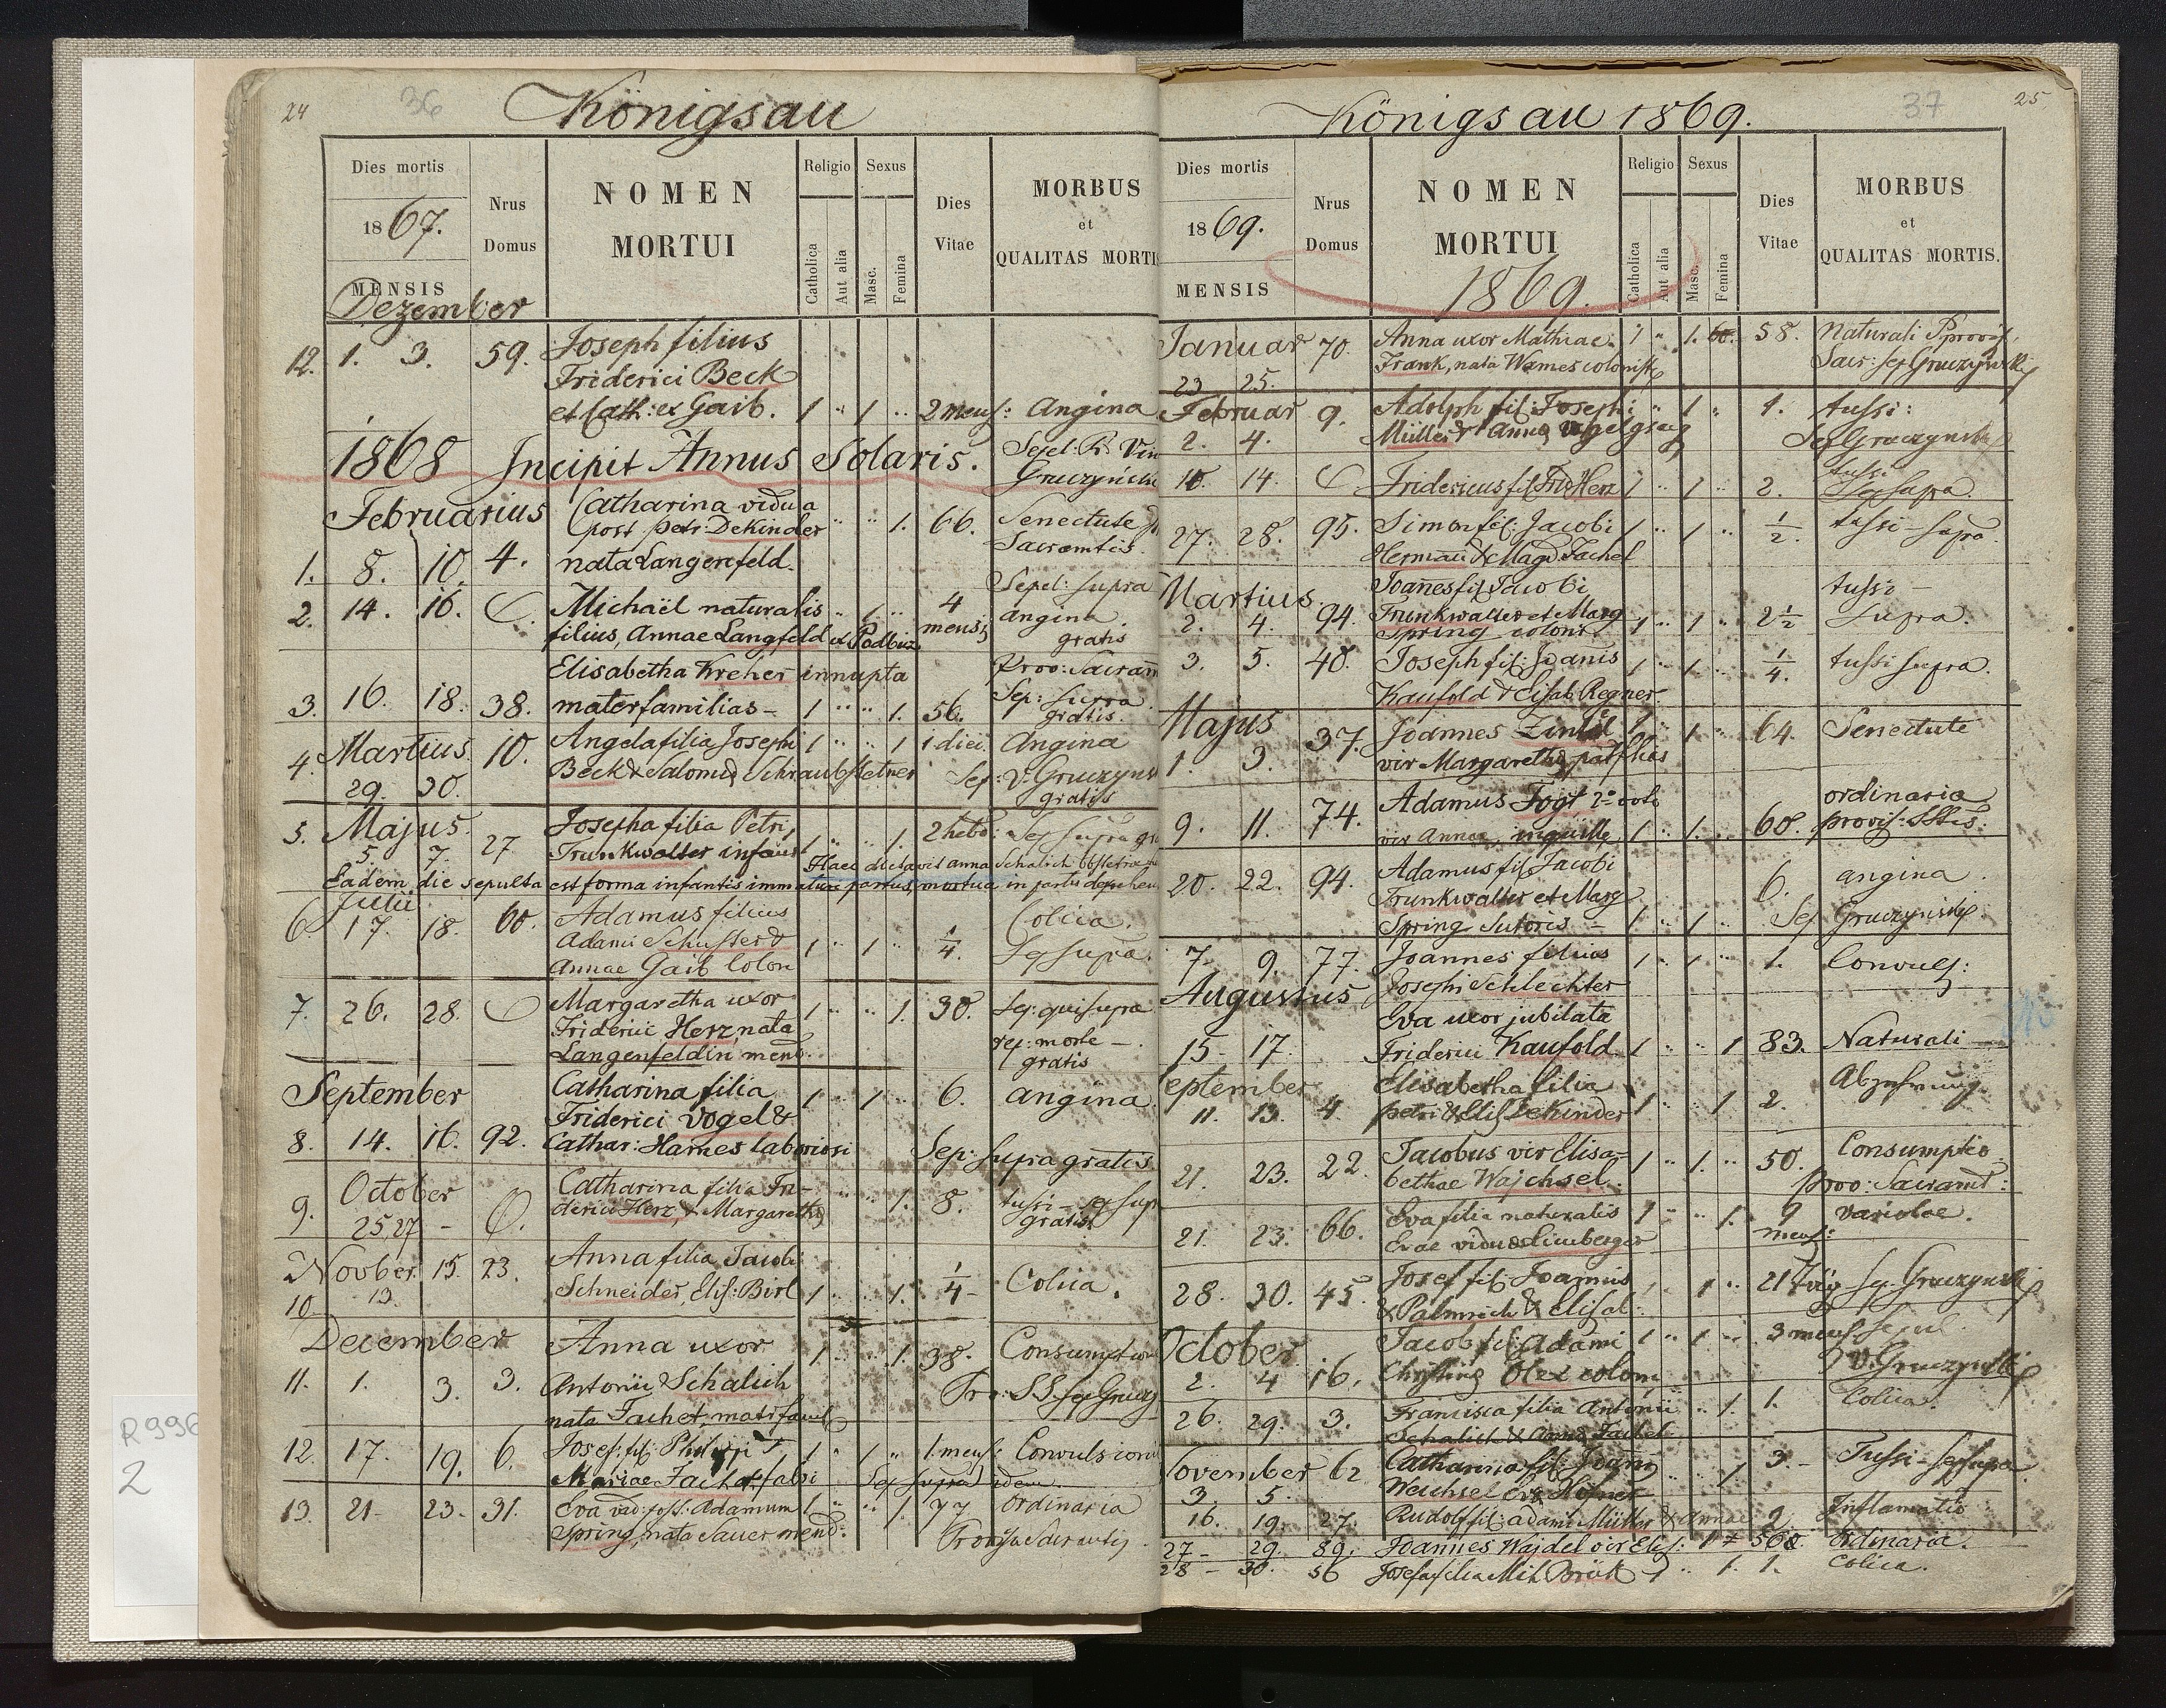 24
36
Königsau
Dies mortis
1867.
MENSIS
Dezember
Nrus
Domus
NOMEN
MORTUI
Religio
Catholica
Aut alia
Sexus
Masc.
Femina
Dies
Vitae
MORBUS
et
QUALITAS MORTIS
12. 1. 3. 59. Joseph filius
Friderici Beck
et Cath: ex Gaib. 1 " 1 " 2 mens: Angina
Sepel: R. Vin
1868 Incipit Annus Solaris.
Gruczyński
Februarius Catharina vidua
post petr: Dekinder " " 1. 66. Senectute
Sacramtis.
1. 8. 10. 4. nata Langenfeld.
Sepel: supra
2. 14. 16. C. Michaël naturalis " 1 " 4 angina
filius, Annae Langfeld ex Podbuz mensis gratis
Elisabetha Kreher innupta Prov: Sacram
3. 16. 18. 38. materfamilias - 1 " " 1. 56. Sep: supra
gratis.
4. Martius 10. Angela filia Josephi 1 " " 1 1 diei. Angina
29. 30. Beck & Salomea Schraubstetner Sep: V. Gruczyns
gratis
5. Majus 27 Josepha filia Petri 1 " " 1. 2 hebd: Sep supra
5. 7. Trunkwalter infans Haec dictavit anna Schalich obstetrix
Eadem die sepulta est forma infantis immaturi partus, mortua in partu
Julii
6. 17. 18. 60. Adamus filius Colica.
Adami Schuster & 1 " 1 " 1/4. Sep supra.
Annae Gaib Colon
7. 26. 28. C Margaretha uxor 1 " " 1. 30. Sep: qui supra
Friderici Herz, nata rep: morte -
Langenfeldin mend. gratis
September Catharina filia 1 " 1 " 6. angina
Friderici Vogel &
8. 14. 16. 92. Cathar: Hames laboriosi Sep: supra gratis
October Catharina filia Fri-
9. 25, 27 - C. derici Herz, & Margaretha " " 1. 8. tussi - sep sup
gratis
Novber. 15. 23. Anna filia Jacobi
10. 13. Schneider, Elis: Birl 1 " " 1. 1/4 - Colica.
December Anna uxor 1 " " 1. 38. Consumption
11. 1. 3. 3. Antonii Schalich S.S. sep Grucz
nata Jachet, matrfamil
12. 17. 19. 6. Josef: fil: Philippi 1 " 1 " 1. mens: Convulsioni
Mariae Jachet, fabri Sep supra idem.
13. 21 - 23. 31. Eva vid: post: Adamum 1 " " 1. 77 ordinaria
Spring, nata Sauer mend. Provisa Sacrmtis
Königsau 1869.
37
25.
Dies mortis
1869.
MENSIS
Nrus
Domus
NOMEN
MORTUI
1869.
Religio
Catholica
Aut alia
Sexus
Masc.
Femina
Dies
Vitae
MORBUS
et
QUALITAS MORTIS.
Januar 70. Anna uxor Mathiae 1 " 1. 58. Naturali Pprovis.
23 25. Frank, nata Wames coloniste Sacr: sep Gruczynski
Februar 9. Adolph fil: Josephi " 1 " 1. tussi:
2. 4. Müller & Anna Vogelgsang Sep Gruczynski
tussi
10. 14. C Fridericus fil Frid Herz 1 " 1 " 2. Sep supra.
27. 28. 95. Simon fil: Jacobi 1 " 1 " 1/2. tussi - supra.
Hermann & Magd Jachel
Martius Joannes fil Jacobi tussi -
2. 4. 94. Trunkwalter et Marg 1 " 1 " 2 1/2 supra.
Spring colonis
3. 5. 48. Joseph fil: Joanis 1 " 1 " 1/4. tussi supra.
Kaufold & Elisab Regner.
Majus 37. Joannes Zintel 1 " 1. " 64. Senectute
1. 3. vir Margaretha, patflias
9. 11. 74. Adamus Fogt, 2do voto ordinaria
vir Annae 1 " 1. " 60. provis: SStis.
20. 22. 94. Adamus fil Jacobi 6. angina.
Trunkwalter et Marg
Spring Sutoris - 1 " 1 " Sep Gruczynski
7 9. 77. Joannes filius 1 " 1 " 1. Convuls:
Augustus Josephi Schlechter
Eva uxor jubilata
15 - 17. Friderici Kaufold 1 " " 1 83. Naturali
September Elisabetha filia Abzehrung
11. 13. 4. petri & Elis Dekinder 1 " " 1 2.
21. 23. 22. Jacobus vir Elisa- 1 " 1. " 50. Consumptio
bethae Wajchsel. prov: Sacramt:
21. 23. 66. Eva filia naturalis 1 " " 1. 9 variolae.
Evae viduae Limberger mens:
28. 30. 45. Josef fil: Joannis " 1 " 21 Tag Sep. Gruczynski
Palmrich & Elisab:
October Jacob fil: Adami 1 " 1 " 3 mens sepul.
2. 4 16. Christina Olex colon V. Gruczynski
26. 29. 3. Francisca filia Antonii " 1. 1. Colica.
Schalich & Anna Jachel
November 62 Catharina fil: Joann 1. 3. - Tussi - sep supra
3. 5. Weichsel Eva Hefner
16. 19. 27. Rudolf fil: adami Müller & Annae 2. Inflamatio
27 - 29. 89. Joannes Wajdel vir Elis: ordinaria.
28 - 30. 56 Josefa filia Mih Brük 1 " 1. 1. Colica.
R 996
2